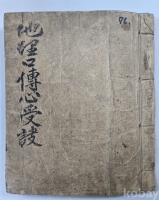 地理口傳心受訣
76
kobay